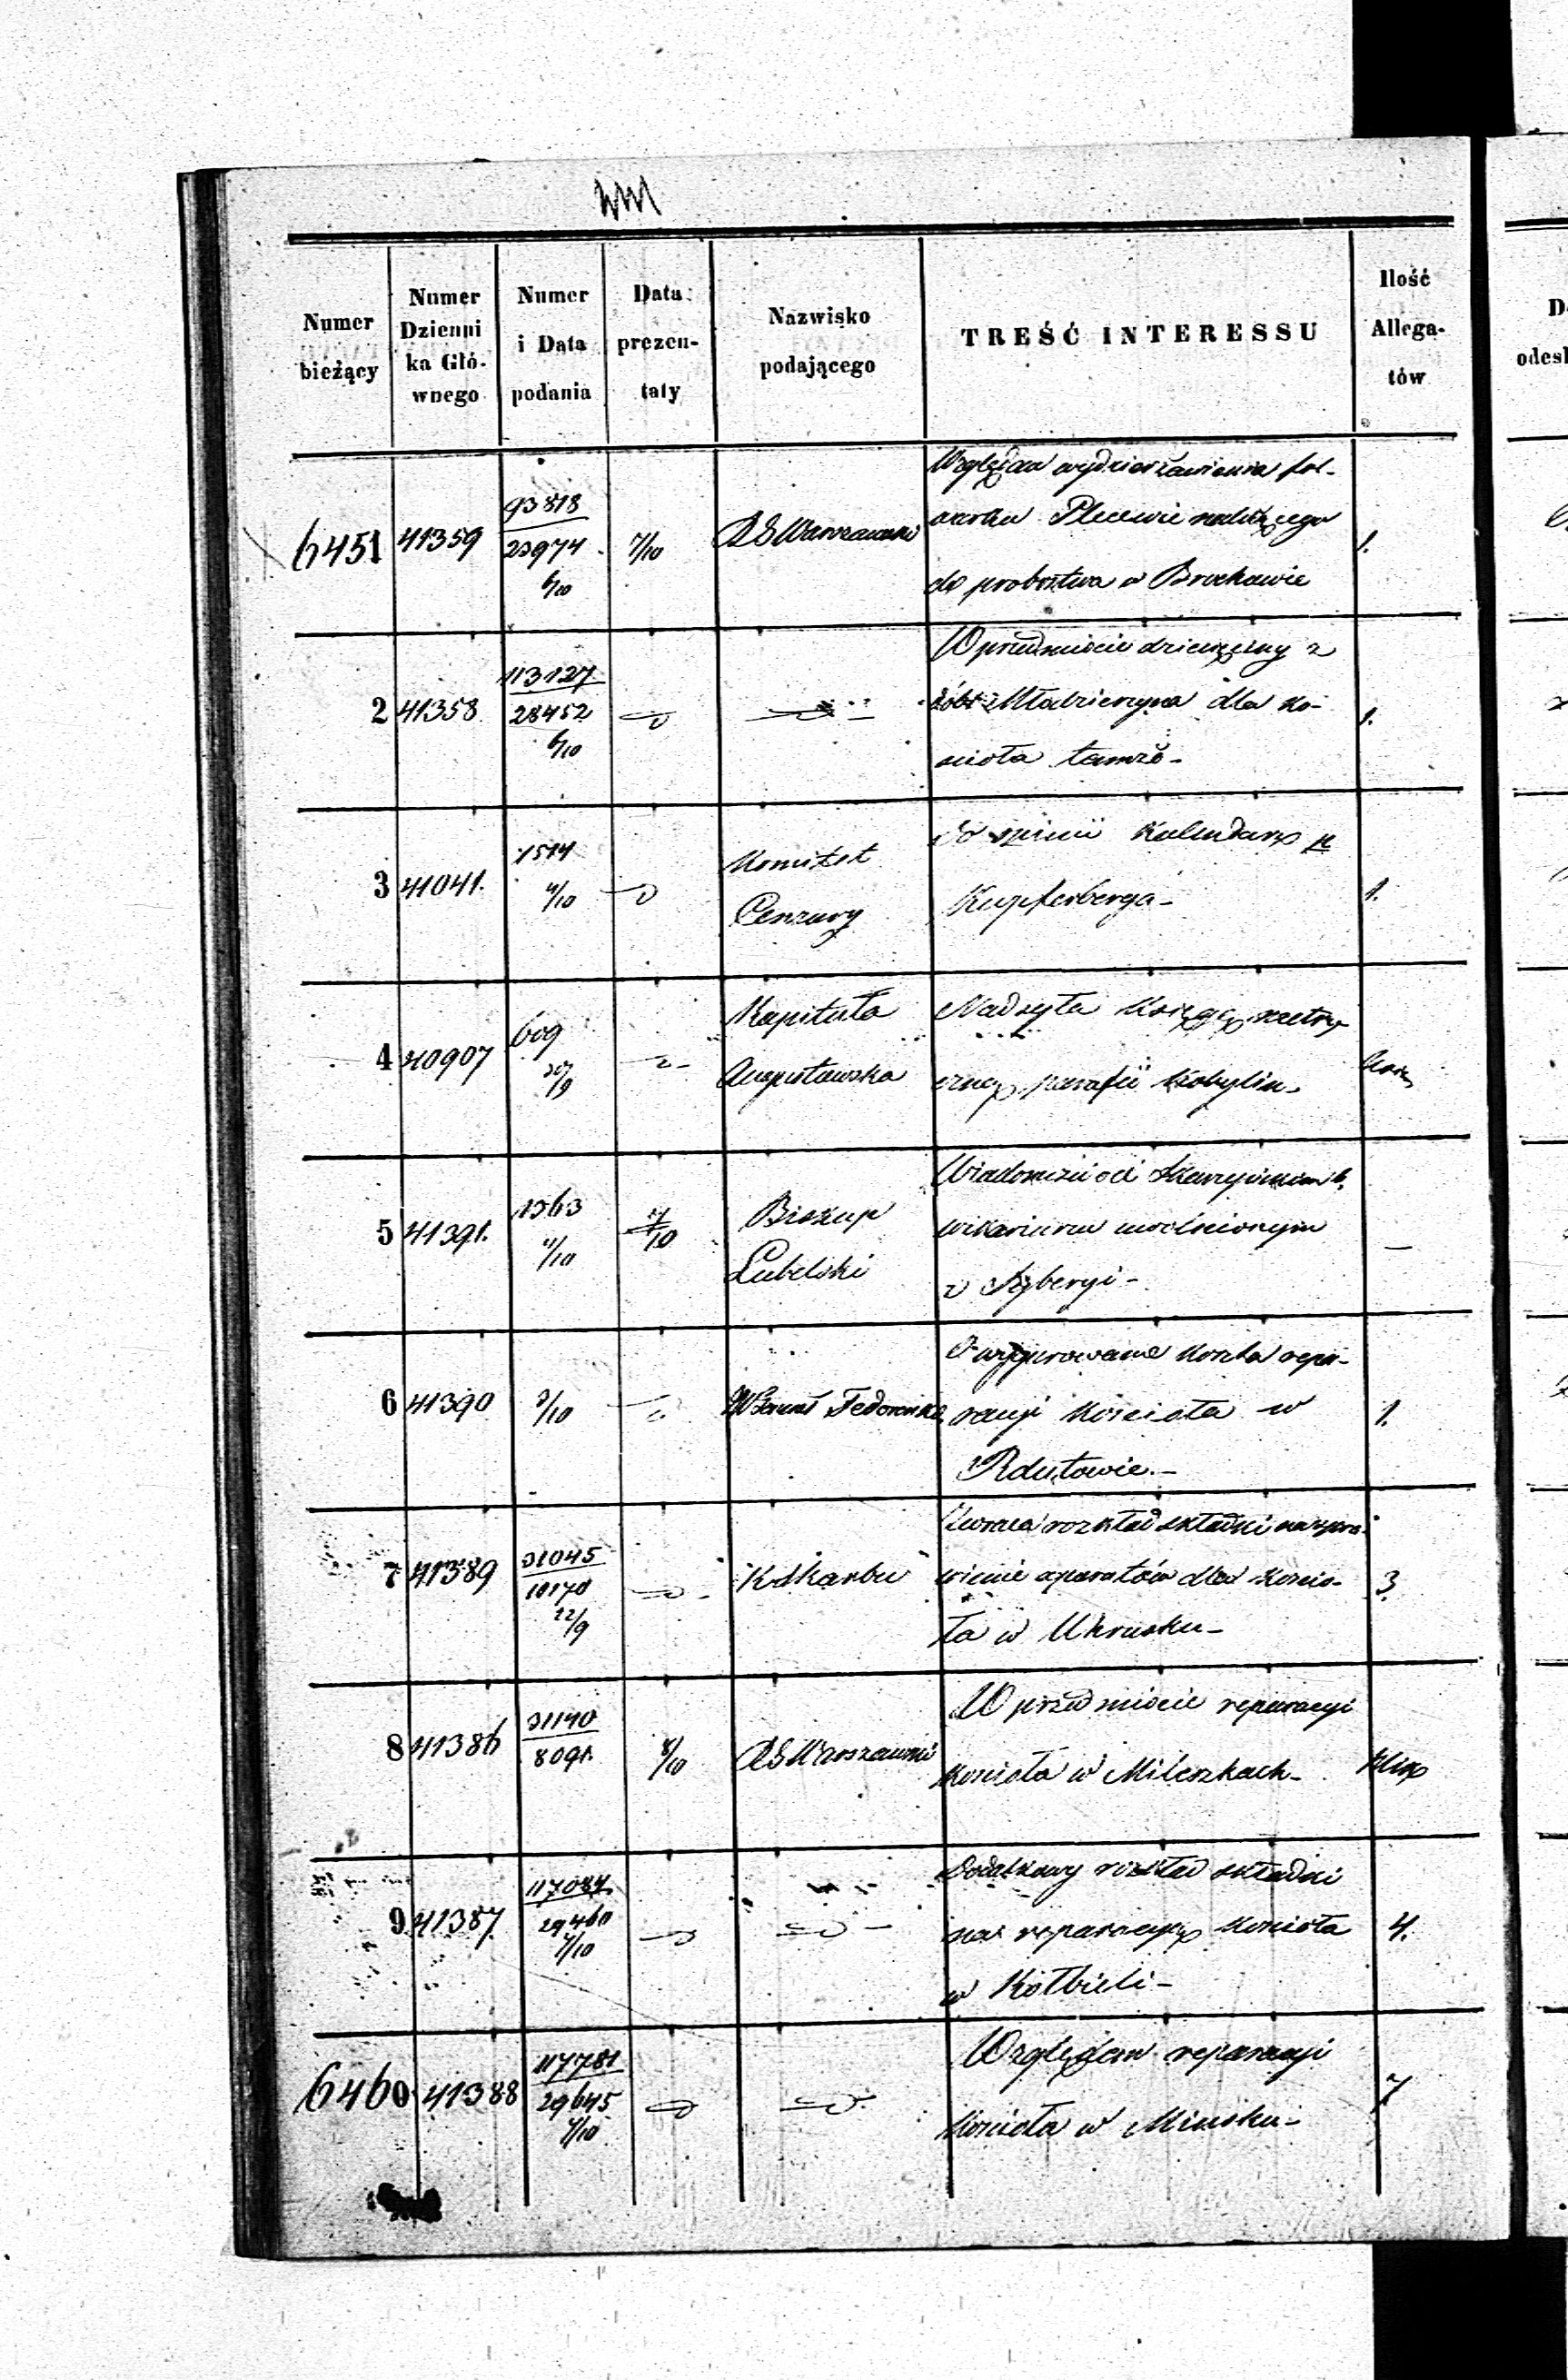 Numer bieżący
Numer Dzienni ka Głó- wnego
Numer i Data podania
Data prezen- taty
Nazwisko podającego
TREŚĆ INTERESSU
Ilość Allega- tów
6451 41359 93818 7/10 1.
23974
6/10
Względem wydzierżawienia fol-
warku Plecewic należącego
do probostwa w Brochowie
2 41358 113127 1.
28452
6/10
W przedmiocie dziesięciny z
dóbr Młodzieszyna dla ko-
ścioła tamże-
3 41041. 1514 1.
4/10
Komitet
Cenzury
Kalendarz
Kupferberga-
4 40907 609
20/9
Kapituła
Augustowska
Nadsyła Księgę metry
czną parafii Kobylin-
5 41391. 1563 7/10 —
4/10
Biskup
Lubelski
wikariuszu uwolnionym
z Syberyi-
6 41390 3/10 1.
Koszta repa-
racyi Kościoła w
Rdutowie.-
7 41389 31045 3.
10170
22/9
K Skarbu
Zwraca rozkład składki na spra-
wienie aparatów dla Kościo-
ła w Uhrusku-
8 41386 31140 8/10
8091.
W przedmiocie reparacyi
Kościoła w Mileszkach-
9 41387. 117084 4.
29460
7/10
Dodatkowy rozkład składki
na reparacyę Kościoła
w Kołbieli-
6460 41388 117781 7
29645
7/10
Względem reparacyi
Kościoła w Mińsku-